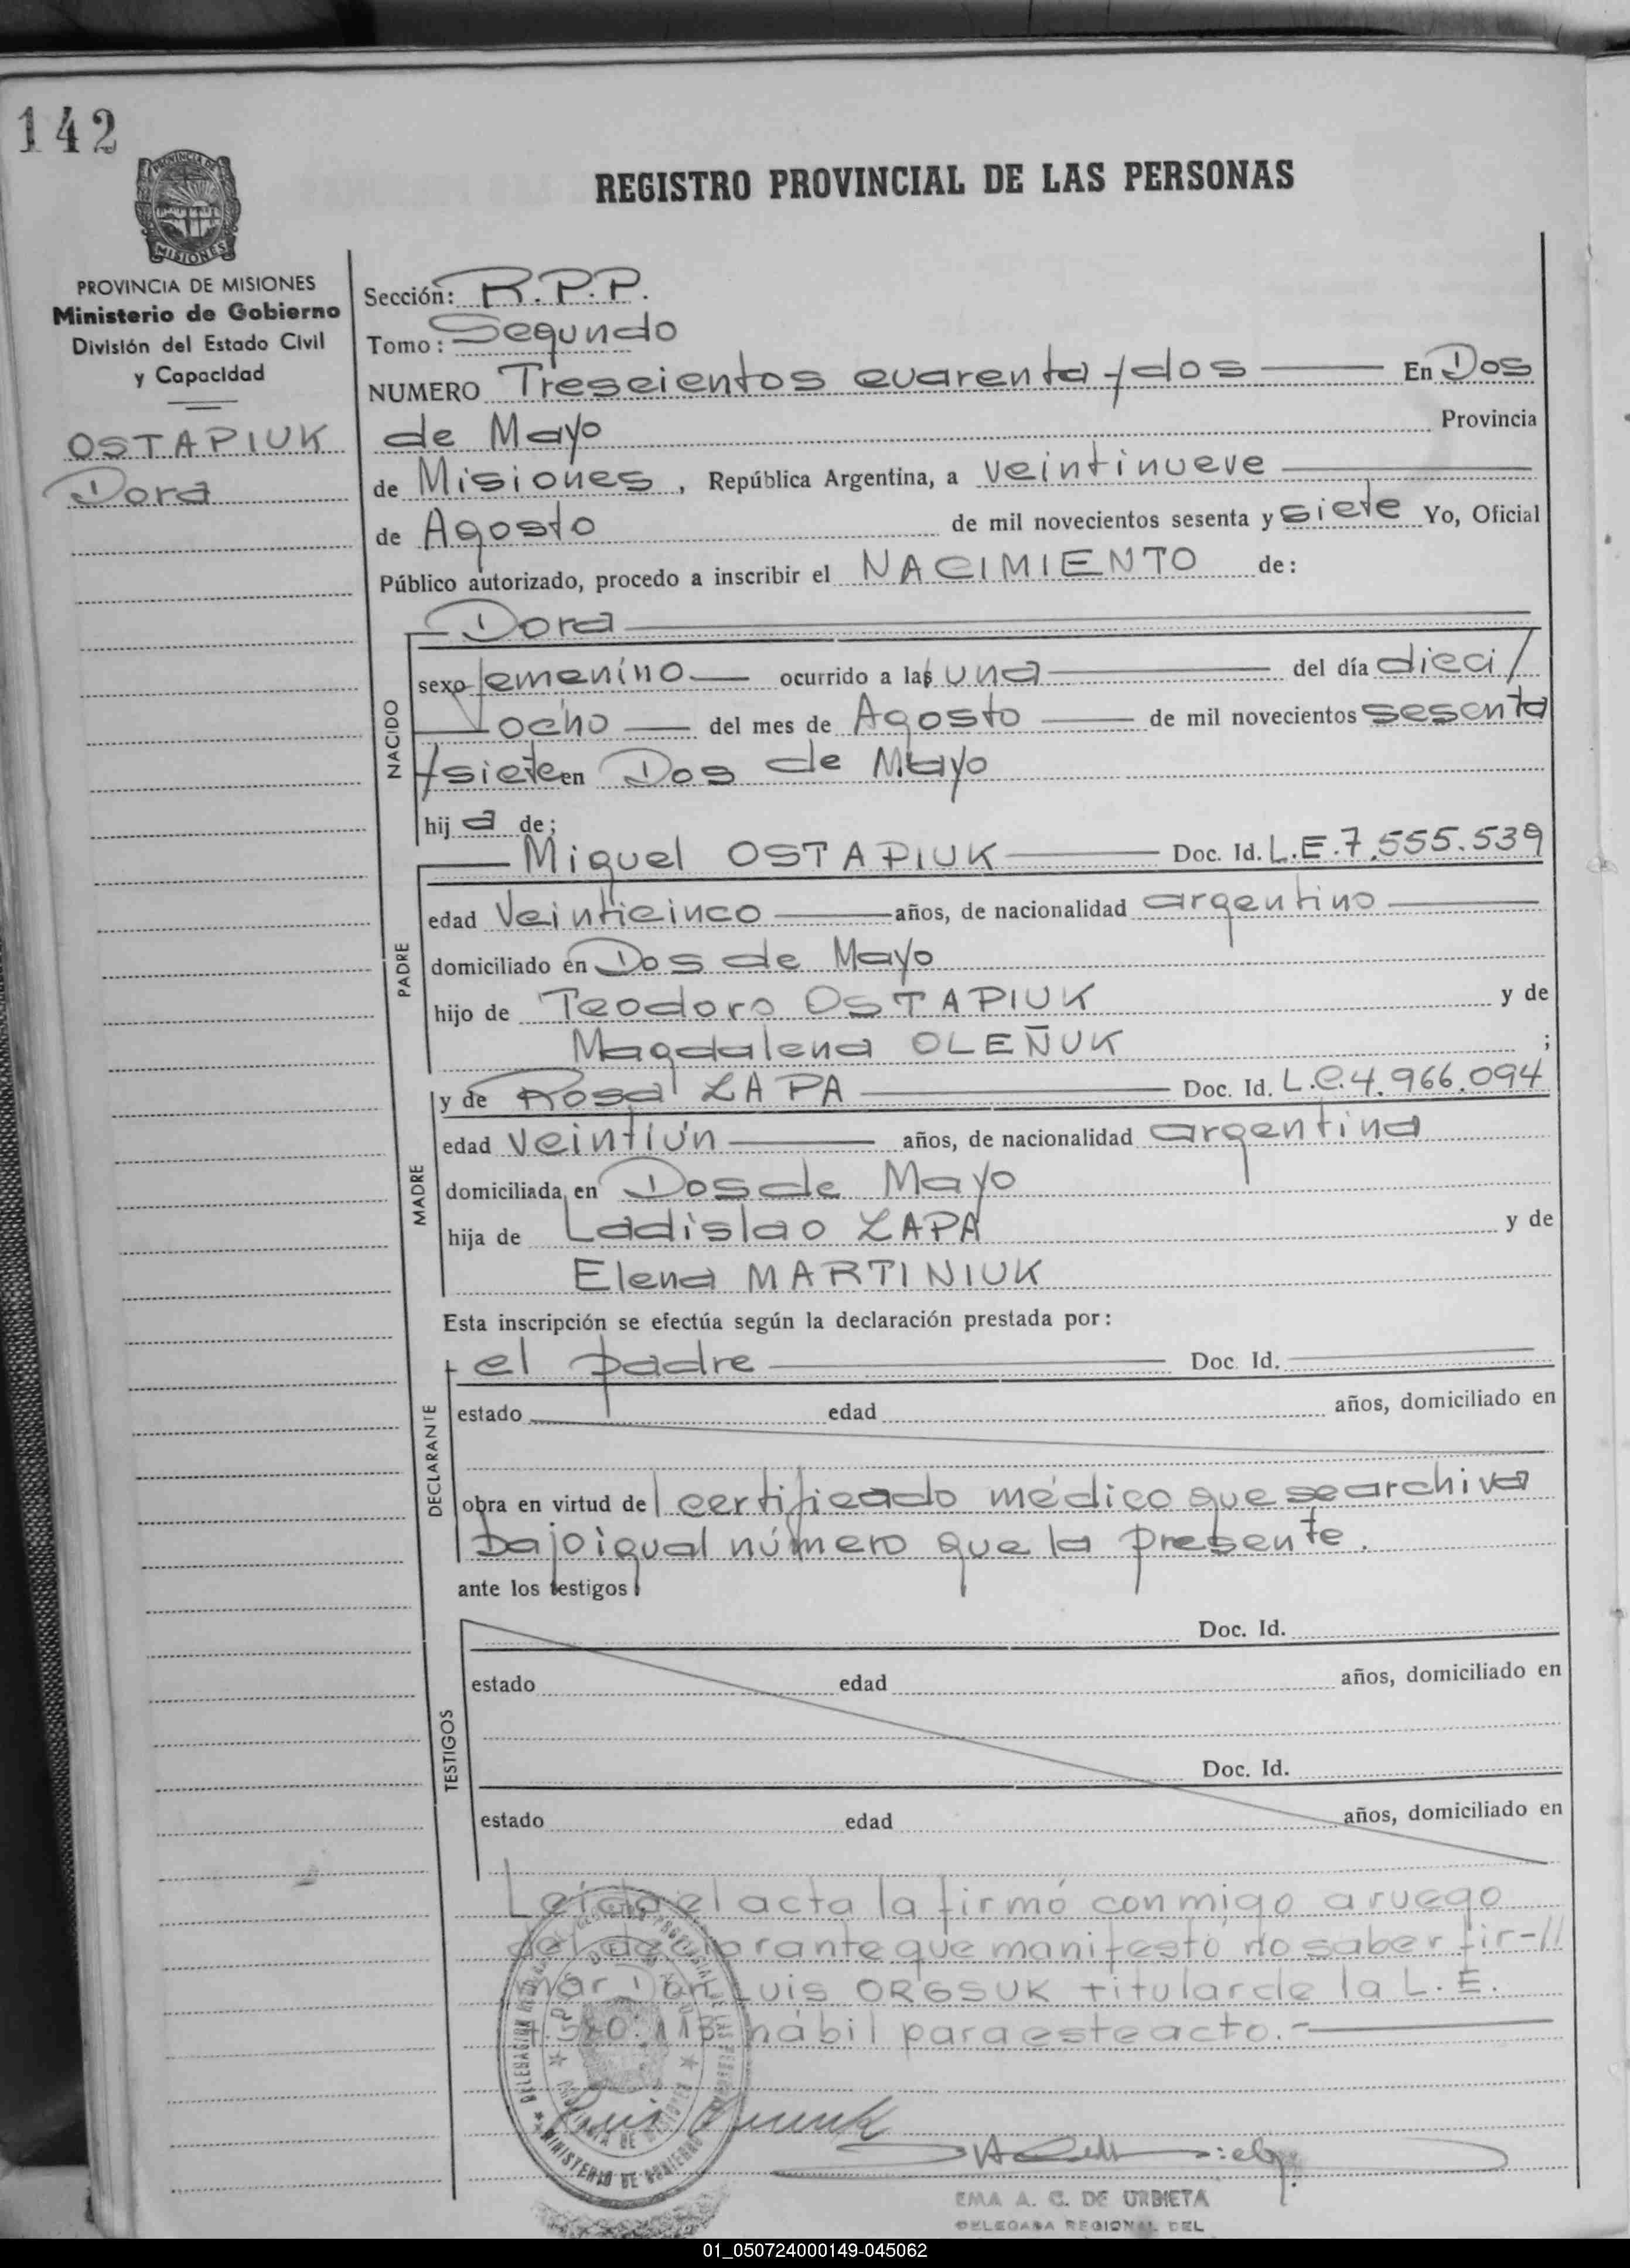 142
REGISTRO PROVINCIAL DE LAS PERSONAS
PROVINCIA DE MISIONES
Ministerio de Gobierno
División del Estado Civil
y Capacidad
OSTAPIUK
Dora
Sección: R.P.P.
Tomo: Segundo
NUMERO Trescientos cuarenta y dos En Dos
de Mayo Provincia
de Misiones, República Argentina, a veintinueve
de Agosto de mil novecientos sesenta y siete Yo, Oficial
Público autorizado, procedo a inscribir el NACIMIENTO de:
NACIDO
Dora
sexo femenino ocurrido a las una del día dieci/
ocho del mes de Agosto de mil novecientos sesenta
y siete en Dos de Mayo
hija de;
PADRE
Miguel OSTAPIUK Doc. Id. L.E.7.555.539
edad Veinticinco años, de nacionalidad argentino
domiciliado en Dos de Mayo
hijo de Teodoro OSTAPIUK y de
Magdalena OLEÑUK ;
MADRE
y de Rosa ZAPA Doc. Id. L.C.4.966.094
edad veintiún años, de nacionalidad argentina
domiciliada en Dos de Mayo
hija de Ladislao ZAPA y de
Elena MARTINIUK
Esta inscripción se efectúa según la declaración prestada por:
DECLARANTE
el padre Doc. Id.
estado edad años, domiciliado en
obra en virtud del certificado médico que se archiva
bajo igual número que la presente.
ante los testigos
TESTIGOS
Doc. Id.
estado edad años, domiciliado en
Doc. Id.
estado edad años, domiciliado en
Leída el acta la firmó conmigo a ruego
del declarante que manifestó no saber fir-//
mar Don Luis ORGSUK titular de la L.E.
hábil para este acto.-
MINISTERIO DE GOBIERNO
Luis
EMA A. C. DE URBIETA
DELEGADA REGIONAL DEL
01_050724000149-045062